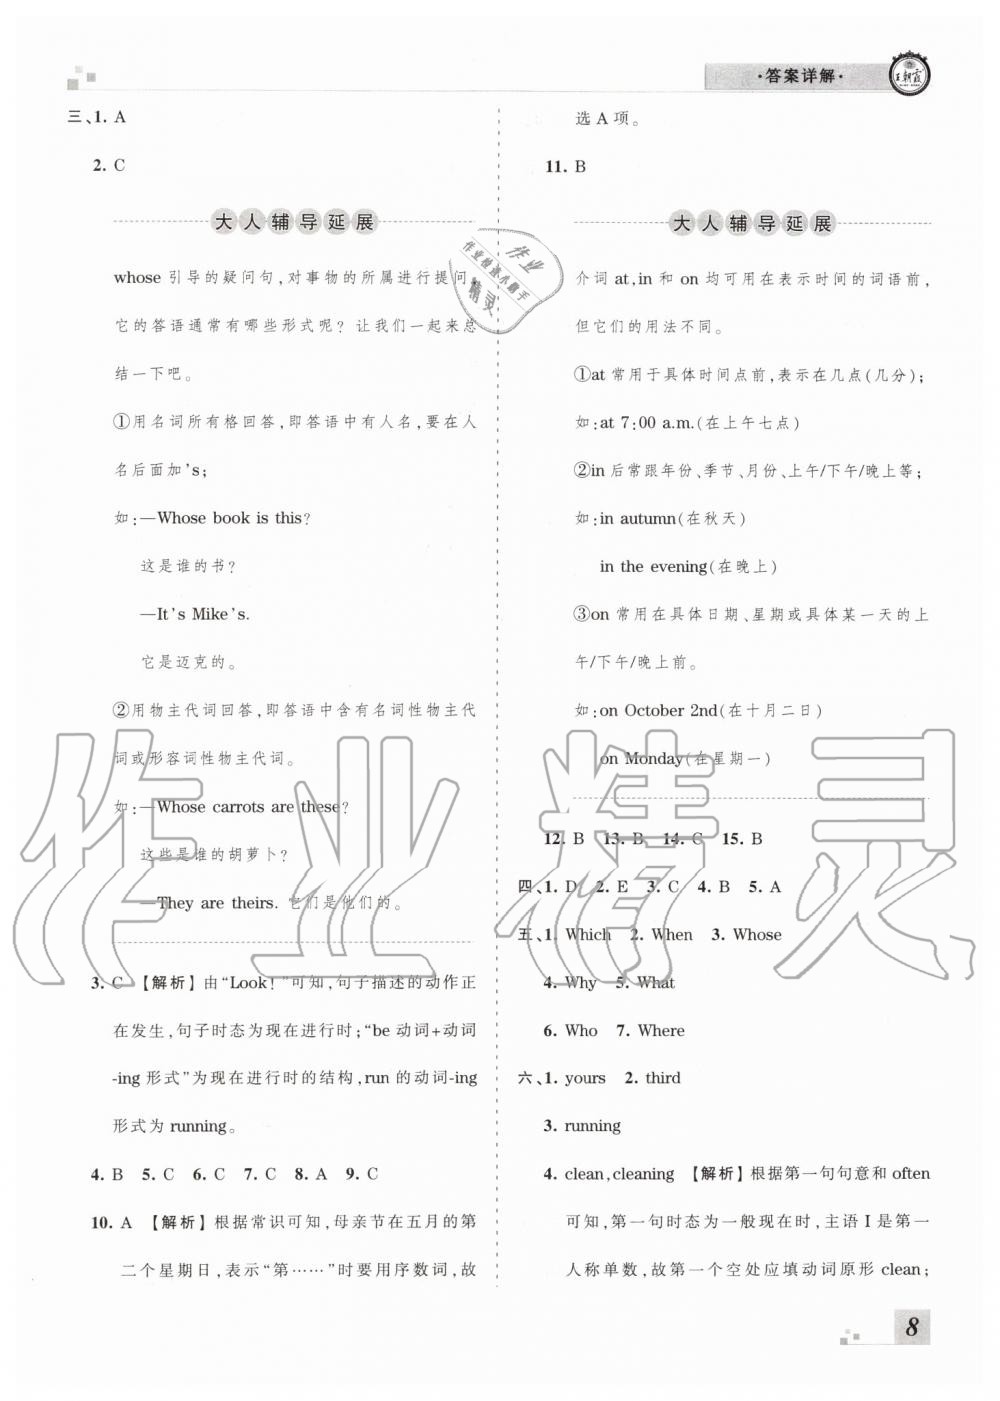 ·答案详解·
王朝霞
三、1. A
2. C
大人辅导延展
whose 引导的疑问句,对事物的所属进行提问,
它的答语通常有哪些形式呢? 让我们一起来总
结一下吧。
①用名词所有格回答,即答语中有人名,要在人
名后面加’s;
如:—Whose book is this?
这是谁的书?
—It’s Mike’s.
它是迈克的。
②用物主代词回答,即答语中含有名词性物主代
词或形容词性物主代词。
如:—Whose carrots are these?
这些是谁的胡萝卜?
—They are theirs. 它们是他们的。
3. C 【解析】由“Look!”可知,句子描述的动作正
在发生,句子时态为现在进行时;“be 动词+动词
-ing 形式”为现在进行时的结构,run 的动词-ing
形式为 running。
4. B 5. C 6. C 7. C 8. A 9. C
10. A 【解析】根据常识可知,母亲节在五月的第
二个星期日,表示“第……”时要用序数词,故
选 A 项。
11. B
大人辅导延展
介词 at,in 和 on 均可用在表示时间的词语前,
但它们的用法不同。
①at 常用于具体时间点前,表示在几点(几分);
如:at 7:00 a.m.(在上午七点)
②in 后常跟年份、季节、月份、上午/下午/晚上等;
如:in autumn(在秋天)
in the evening(在晚上)
③on 常用在具体日期、星期或具体某一天的上
午/下午/晚上前。
如:on October 2nd(在十月二日)
on Monday(在星期一)
12. B 13. B 14. C 15. B
四、1. D 2. E 3. C 4. B 5. A
五、1. Which 2. When 3. Whose
4. Why 5. What
6. Who 7. Where
六、1. yours 2. third
3. running
4. clean,cleaning 【解析】根据第一句句意和 often
可知,第一句时态为一般现在时,主语 I 是第一
人称单数,故第一个空处应填动词原形 clean;
8
作业精灵